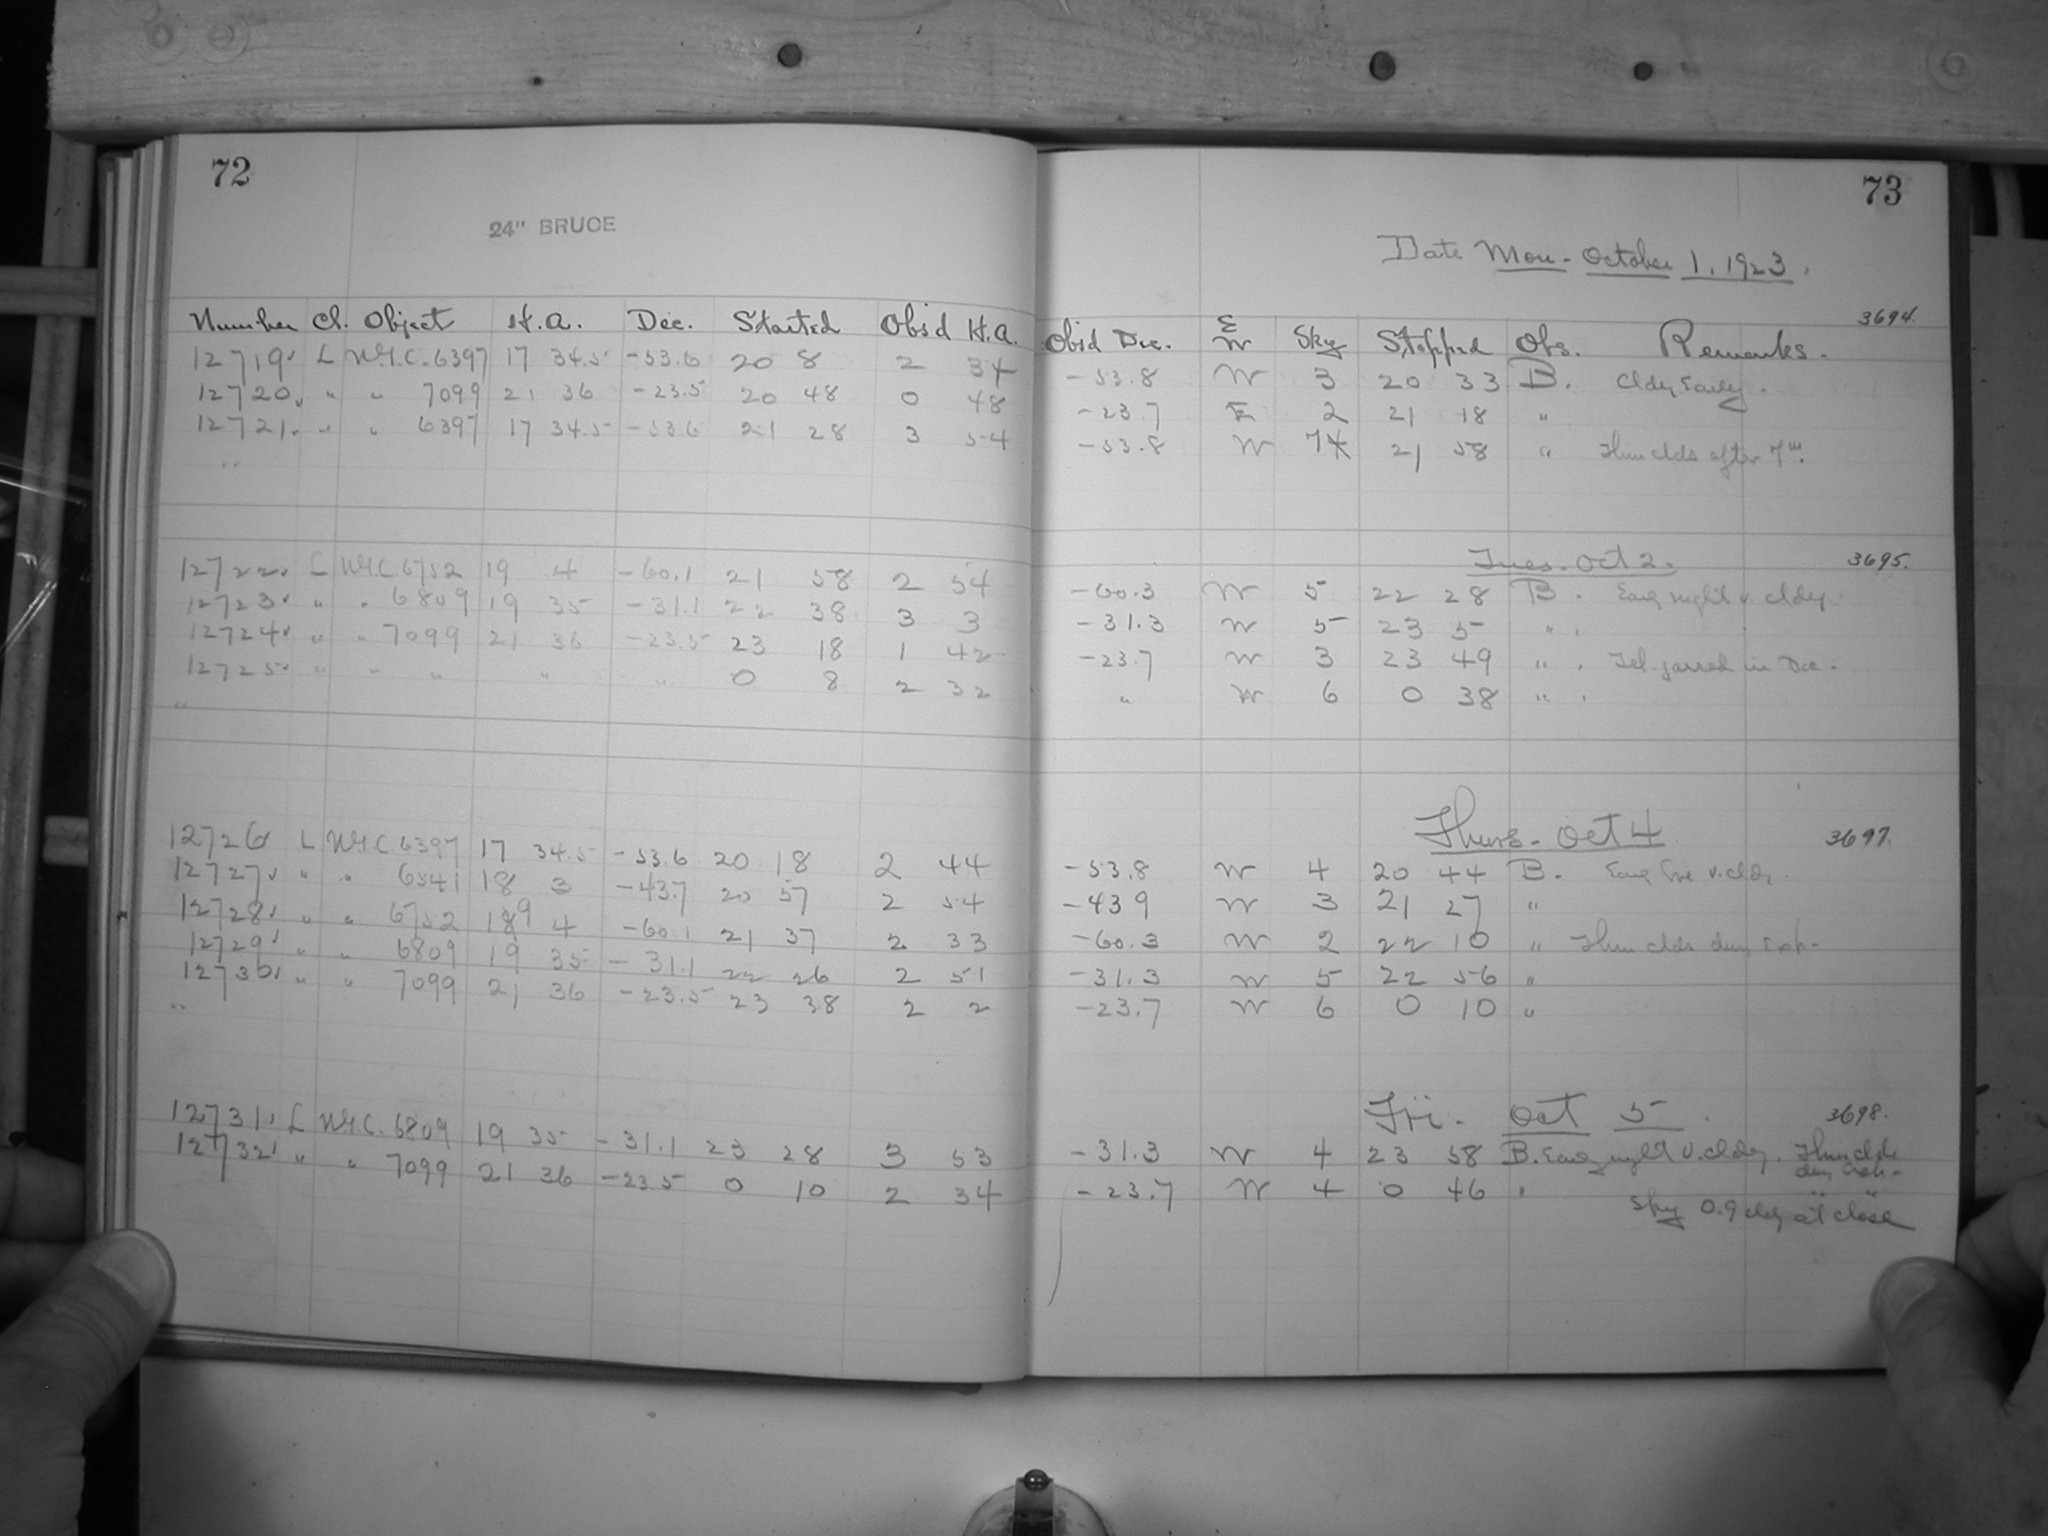 72
73
24" BRUCE
Date Mon - October 1, 1923.
3694.
Number Cl. Object H.A. Dec. Started Obs'd H.A. Obs'd Dec. E W Sky Stopped Obs. Remarks.
12719 L N.G.C. 6397 17 34.5 -53.6 20 8 2 34 -53.8 W 3 20 33 B. Cldy Early.
12720 " " 7099 21 36 -23.5 20 48 0 48 -23.7 E 2 21 18 "
12721 " " 6397 17 34.5 -53.6 21 28 3 54 -53.8 W 21 58 " Thin clds after 7m.
"
Tues. Oct 2. 3695.
12722 L N.G.C. 6752 19 4 -60.1 21 58 2 54 -60.3 W 5 22 28 B. Early night v. cldy.
12723 " " 6809 19 35 -31.1 22 38 3 3 -31.3 W 5 23 5 "
12724 " " 7099 21 36 -23.5 23 18 1 42 -23.7 W 3 23 49 " Tel. jarred in Dec.
12725 " " " " " 0 8 2 32 " W 6 0 38 "
"
Thurs. Oct 4 3697.
12726 L N.G.C. 6397 17 34.5 -53.6 20 18 2 44 -53.8 W 4 20 44 B. Early Eve v. cldy.
12727 " " 6541 18 3 -43.7 20 57 2 54 -43.9 W 3 21 27 "
12728 " " 6752 19 4 -60.1 21 37 2 33 -60.3 W 2 22 10 " Thin clds durg Exp.
12729 " " 6809 19 35 -31.1 22 26 2 51 -31.3 W 5 22 56 "
12730 " " 7099 21 36 -23.5 23 38 2 2 -23.7 W 6 0 10 "
"
Fri. Oct 5. 3698.
12731 L N.G.C. 6809 19 35 -31.1 23 28 3 53 -31.3 W 4 23 58 B. Early night v. cldy. Thin clds
durg Exp.
12732 " " 7099 21 36 -23.5 0 10 2 34 -23.7 W 4 0 46 " " "
Sky 0.9 cldy at close